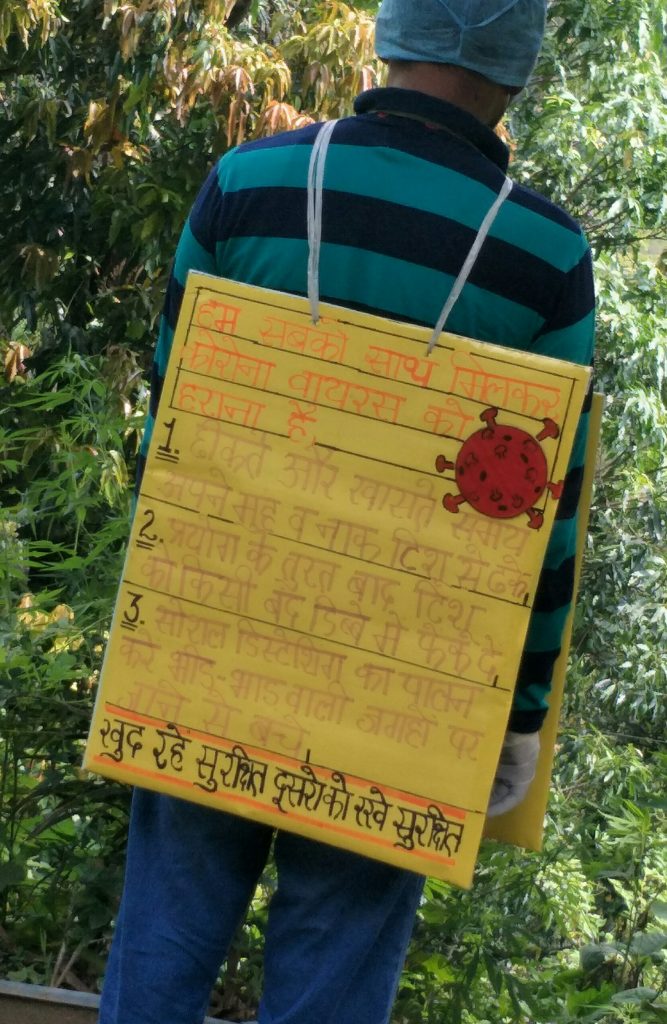 हम सबको साथ मिलकर
कोरोना वायरस को
हराना है
1. छींकते और खासते समय
अपने मुह व नाक टिशु से ढके,
2. प्रयोग के तुरत बाद टिशु
को किसी बंद डिब्बे मे फेंक दे,
3. सोशल डिस्टेंसिंग का पालन
करे भीड़-भाड वाली जगहो पर
जाने से बचे
खुद रहें सुरक्षित दूसरो को रखे सुरक्षित